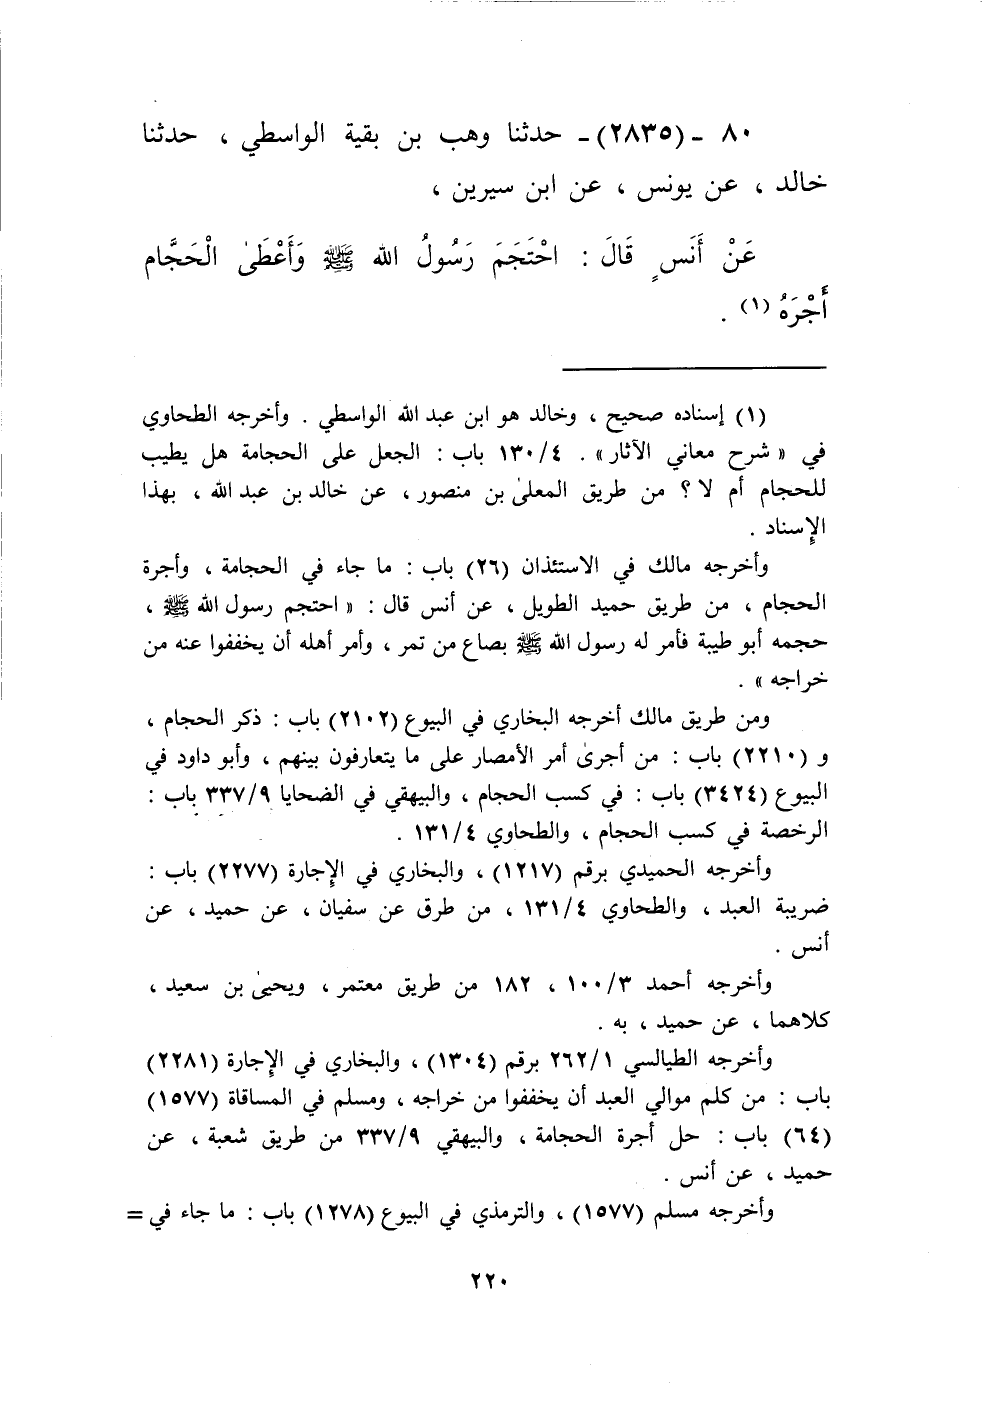 ٨٠ ـ (٢٨٣٥) ـ حدثنا وهب بن بقية الواسطي ، حدثنا
خالد ، عن يونس ، عن ابن سيرين ،
عَنْ أَنَسٍ قَالَ : احْتَجَمَ رَسُولُ الله ﷺ وَأَعْطَىٰ الْحَجَّام
أَجْرَهُ (١) .
(١) إسناده صحيح ، وخالد هو ابن عبد الله الواسطي . وأخرجه الطحاوي
في « شرح معاني الآثار» . ١٣٠/٤ باب : الجعل على الحجامة هل يطيب
للحجام أم لا ؟ من طريق المعلىٰ بن منصور ، عن خالد بن عبد الله ، بهذا
الإسناد .
وأخرجه مالك في الاستئذان (٢٦) باب : ما جاء في الحجامة ، وأجرة
الحجام ، من طريق حميد الطويل ، عن أنس قال : « احتجم رسول الله ﷺ ،
حجمه أبو طيبة فأمر له رسول الله ﷺ بصاع من تمر ، وأمر أهله أن يخففوا عنه من
خراجه » .
ومن طريق مالك أخرجه البخاري في البيوع (٢١٠٢) باب : ذكر الحجام ،
و (٢٢١٠) باب : من أجرىٰ أمر الأمصار على ما يتعارفون بينهم ، وأبو داود في
البيوع (٣٤٢٤) باب : في كسب الحجام ، والبيهقي في الضحايا ٣٣٧/٩ باب :
الرخصة في كسب الحجام ، والطحاوي ١٣١/٤ .
وأخرجه الحميدي برقم (١٢١٧) ، والبخاري في الإجارة (٢٢٧٧) باب :
ضريبة العبد ، والطحاوي ١٣١/٤ ، من طرق عن سفيان ، عن حميد ، عن
أنس .
وأخرجه أحمد ١٠٠/٣ ، ١٨٢ من طريق معتمر ، ويحيىٰ بن سعيد ،
كلاهما ، عن حميد ، به .
وأخرجه الطيالسي ٢٦٢/١ برقم (١٣٠٤) ، والبخاري في الإجارة (٢٢٨١)
باب : من كلم موالي العبد أن يخففوا من خراجه ، ومسلم في المساقاة (١٥٧٧)
(٦٤) باب : حل أجرة الحجامة ، والبيهقي ٣٣٧/٩ من طريق شعبة ، عن
حميد ، عن أنس .
وأخرجه مسلم (١٥٧٧) ، والترمذي في البيوع (١٢٧٨) باب : ما جاء في =
٢٢٠